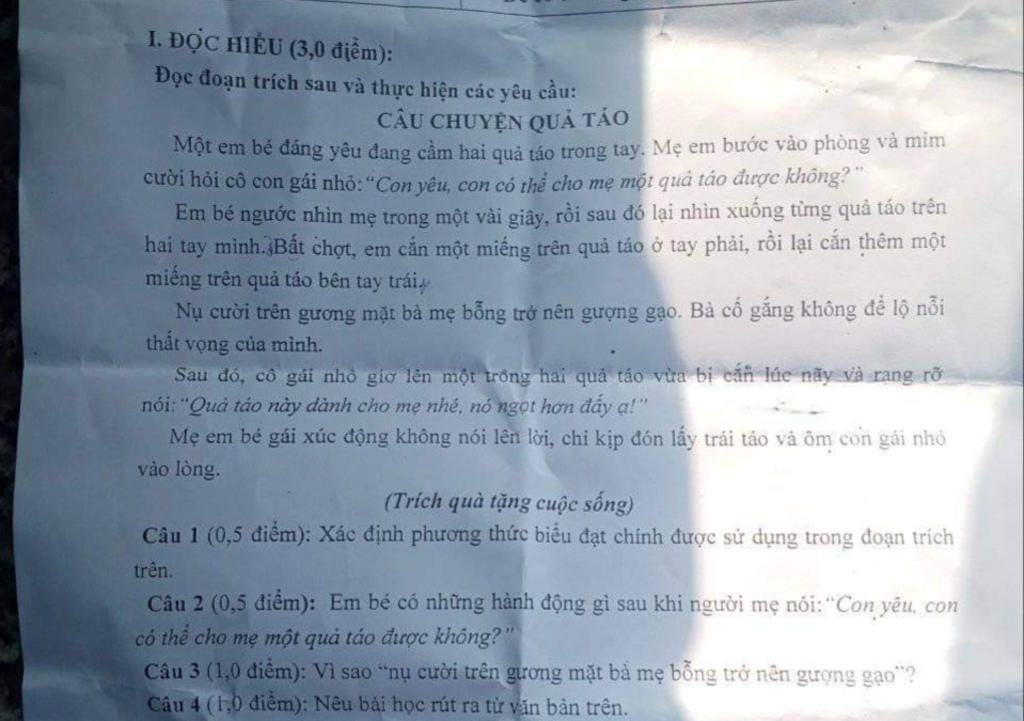 I. ĐỌC HIỂU (3,0 điểm):
Đọc đoạn trích sau và thực hiện các yêu cầu:
CÂU CHUYỆN QUẢ TÁO
Một em bé đáng yêu đang cầm hai quả táo trong tay. Mẹ em bước vào phòng và mỉm
cười hỏi cô con gái nhỏ: “Con yêu, con có thể cho mẹ một quả táo được không?”
Em bé ngước nhìn mẹ trong một vài giây, rồi sau đó lại nhìn xuống từng quả táo trên
hai tay mình. Bất chợt, em cắn một miếng trên quả táo ở tay phải, rồi lại cắn thêm một
miếng trên quả táo bên tay trái.
Nụ cười trên gương mặt bà mẹ bỗng trở nên gượng gạo. Bà cố gắng không để lộ nỗi
thất vọng của mình.
Sau đó, cô gái nhỏ giơ lên một trong hai quả táo vừa bị cắn lúc nãy và rạng rỡ
nói: “Quả táo này dành cho mẹ nhé, nó ngọt hơn đấy ạ!”
Mẹ em bé gái xúc động không nói lên lời, chỉ kịp đón lấy trái táo và ôm con gái nhỏ
vào lòng.
(Trích quà tặng cuộc sống)
Câu 1 (0,5 điểm): Xác định phương thức biểu đạt chính được sử dụng trong đoạn trích
trên.
Câu 2 (0,5 điểm): Em bé có những hành động gì sau khi người mẹ nói: “Con yêu, con
có thể cho mẹ một quả táo được không?”
Câu 3 (1,0 điểm): Vì sao “nụ cười trên gương mặt bà mẹ bỗng trở nên gượng gạo”?
Câu 4 (1,0 điểm): Nêu bài học rút ra từ văn bản trên.